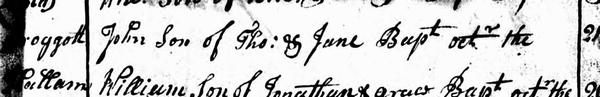 roggott John Son of Tho: & Jane Bapt octr the 2
Hallam William Son of Jonathan & grace Bapt octr the 2